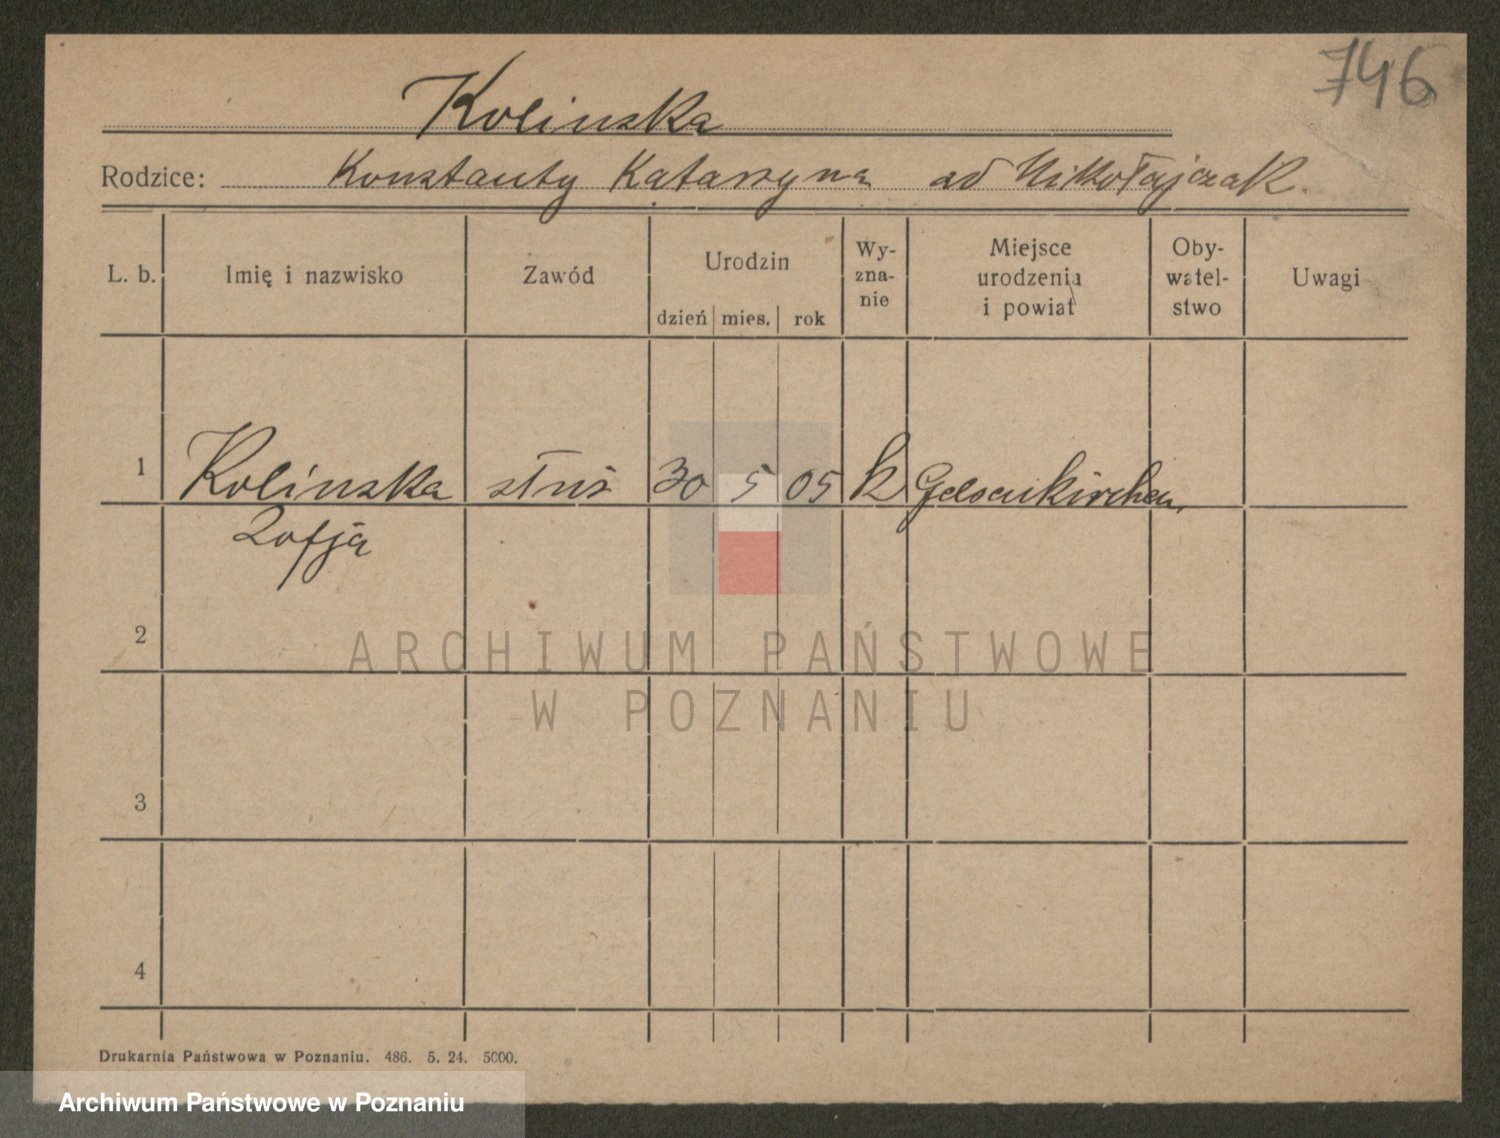 746
Kolinska
Rodzice: Konstanty Katarzyna ad Nikołajczak.
L. b. Imię i nazwisko Zawód Urodzin dzień mies. rok Wy-zna-nie Miejsce urodzenia i powiat Oby-watel-stwo Uwagi
1 Kolinska służ 30 5 05 k Gelsenkirchen.
Zofja
2
ARCHIWUM PAŃSTWOWE
W POZNANIU
3
4
Drukarnia Państwowa w Poznaniu. 486. 5. 24. 5000.
Archiwum Państwowe w Poznaniu